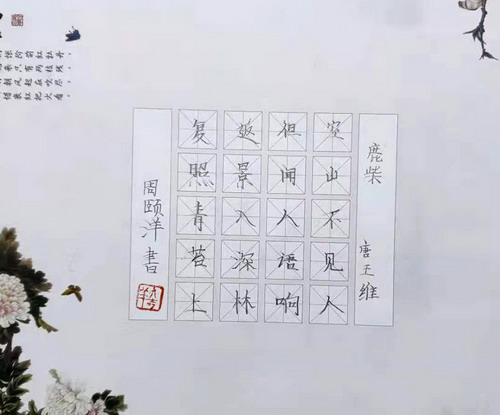 鹿柴
唐王维
空山不见人
但闻人语响
返景入深林
复照青苔上
周颐洋書